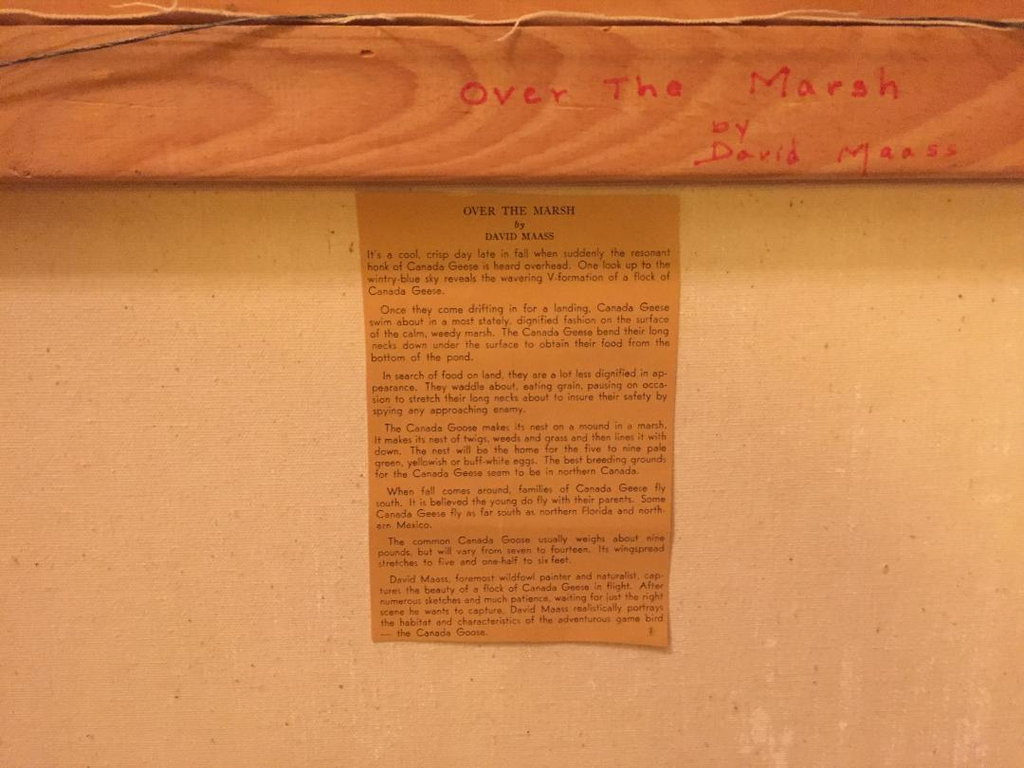 Over The Marsh
by
David Maass
OVER THE MARSH
by
DAVID MAASS
It's a cool, crisp day late in fall when suddenly the resonant
honk of Canada Geese is heard overhead. One look up to the
wintry-blue sky reveals the wavering V-formation of a flock of
Canada Geese.
Once they come drifting in for a landing, Canada Geese
swim about in a most stately, dignified fashion on the surface
of the calm, weedy marsh. The Canada Geese bend their long
necks down under the surface to obtain their food from the
bottom of the pond.
In search of food on land, they are a lot less dignified in ap-
pearance. They waddle about, eating grain, pausing on occa-
sion to stretch their long necks about to insure their safety by
spying any approaching enemy.
The Canada Goose makes its nest on a mound in a marsh.
It makes its nest of twigs, weeds and grass and then lines it with
down. The nest will be the home for the five to nine pale
green, yellowish or buff-white eggs. The best breeding grounds
for the Canada Geese seem to be in northern Canada.
When fall comes around, families of Canada Geese fly
south. It is believed the young do fly with their parents. Some
Canada Geese fly as far south as northern Florida and north-
ern Mexico.
The common Canada Goose usually weighs about nine
pounds, but will vary from seven to fourteen. Its wingspread
stretches to five and one-half to six feet.
David Maass, foremost wildfowl painter and naturalist, cap-
tures the beauty of a flock of Canada Geese in flight. After
numerous sketches and much patience, waiting for just the right
scene he wants to capture, David Maass realistically portrays
the habitat and characteristics of the adventurous game bird
— the Canada Goose.